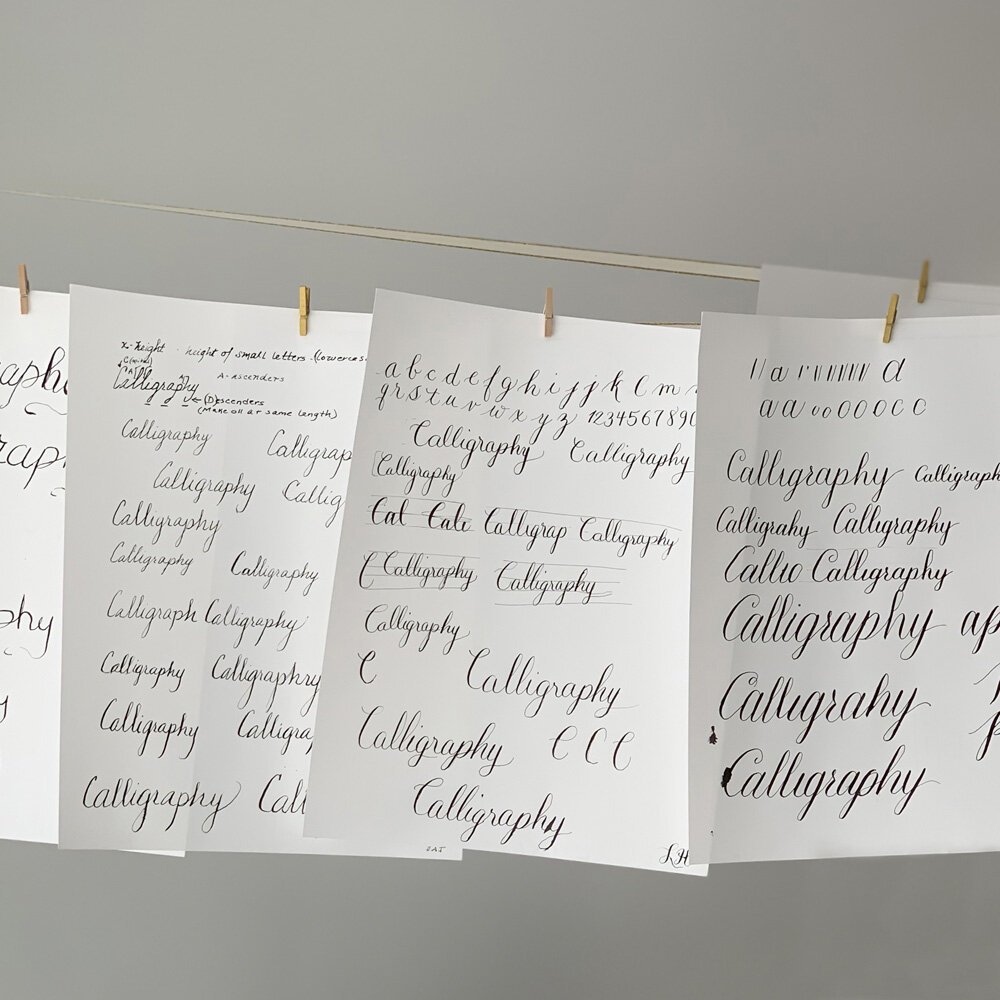 raphy
x-height - height of small letters (lowercas
Calligraphy A - ascenders
(D)escenders
(Make all at same length)
Calligraphy Calligrap
Calligraphy Callig
Calligraphy
Calligraphy Calligraphy
Calligraph Calligraphy
Calligraphy Calligraphry
Calligraphy Calligra
Calligraphy Call
SAJ
a b c d e f g h i j j k l m n
q r s t u v w x y z 1234567890
Calligraphy Calligraphy
Calligraphy
Cal Cali Calligrap Calligraphy
C Calligraphy Calligraphy
Calligraphy
C Calligraphy
Calligraphy C C C
Calligraphy
LH
a a
a a o o O O O C C
Calligraphy Calligraph
Calligrahy Calligraphy
Callio Calligraphy
Calligraphy ap
Calligrahy
Calligraphy